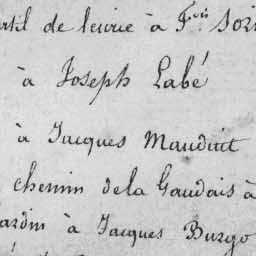 de leurie à F.ois
à Joseph Labé
à Jacques Mauduit
chemin dela Gaudais à
ardin à Jacques Burgo